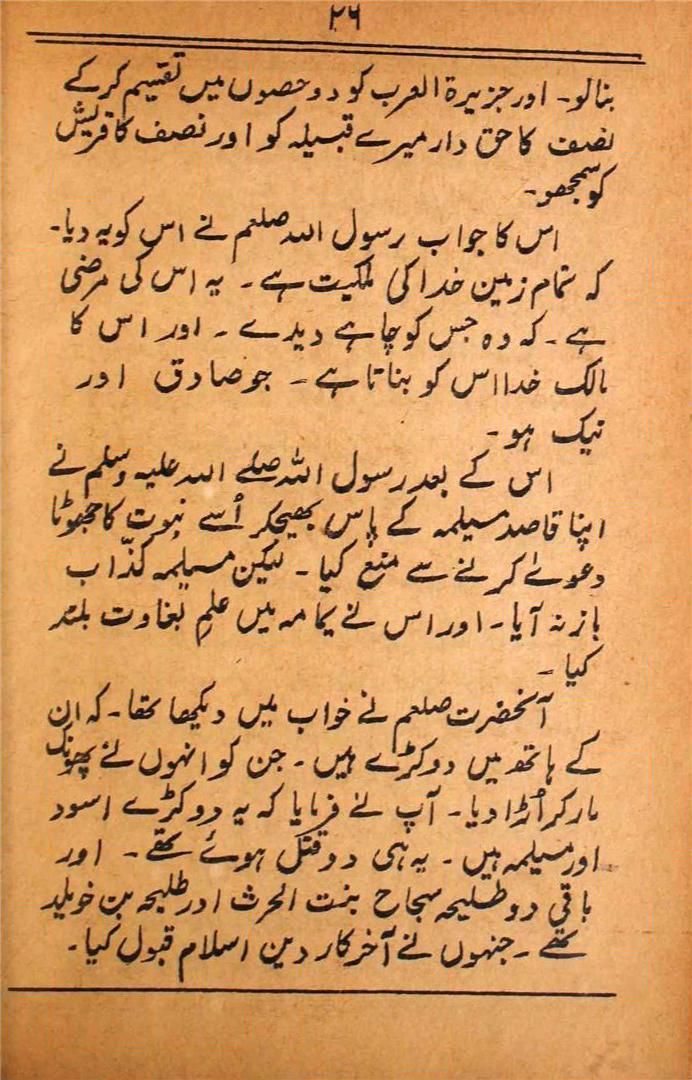 ۲۶
بنالو۔ اور جزیرۃ العرب کو دو حصوں میں تقسیم کر کے
نصف کا حق دار میرے قبیلہ کو اور نصف کا قریش
کو سمجھو۔
اس کا جواب رسول اللہ صلعم نے اس کو یہ دیا۔
کہ تمام زمین خدا کی ملکیت ہے۔ یہ اس کی مرضی
ہے۔ کہ وہ جس کو چاہے دیدے۔ اور اس کا
مالک خدا اس کو بناتا ہے۔ جو صادق اور
نیک ہو۔
اس کے بعد رسول اللہ صلے اللہ علیہ وسلم نے
اپنا قاصد مسیلمہ کے پاس بھیجکر اُسے نبوت کا جھوٹا
دعوےٰ کرنے سے منع کیا۔ لیکن مسیلمہ کذّاب
باز نہ آیا۔ اور اس نے یمامہ میں علمِ بغاوت بلند
کیا۔
آنحضرت صلعم نے خواب میں دیکھا تھا۔ کہ ان
کے ہاتھ میں دو کڑے ہیں۔ جن کو انہوں نے پھونک
مار کر اُڑا دیا۔ آپ نے فرمایا کہ یہ دو کڑے اسود
اور مسیلمہ ہیں۔ یہ ہی دو قتل ہوئے تھے۔ اور
باقی دو طلیحہ سجاح بنت الحرث اور طلیحہ بن خویلد
تھے۔ جنہوں نے آخر کار دین اسلام قبول کیا۔